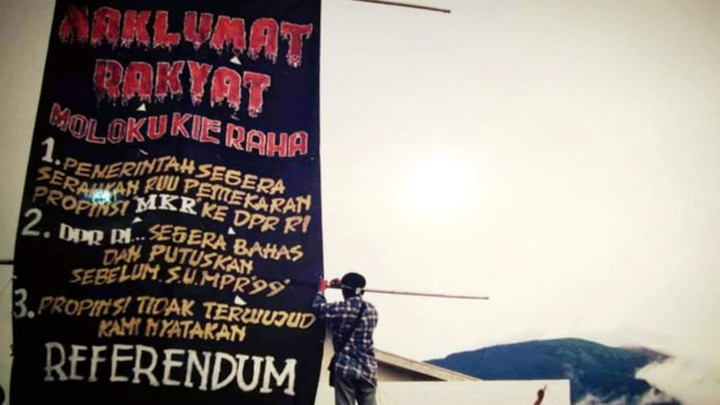 MAKLUMAT
RAKYAT
MOLOKU KIE RAHA
1. PEMERINTAH SEGERA
SERAHKAN RUU PEMEKARAN
PROPINSI MKR KE DPR RI
2. DPR RI... SEGERA BAHAS
DAN PUTUSKAN
SEBELUM S.U. MPR '99'
3. PROPINSI TIDAK TERWUJUD
KAMI NYATAKAN
REFERENDUM